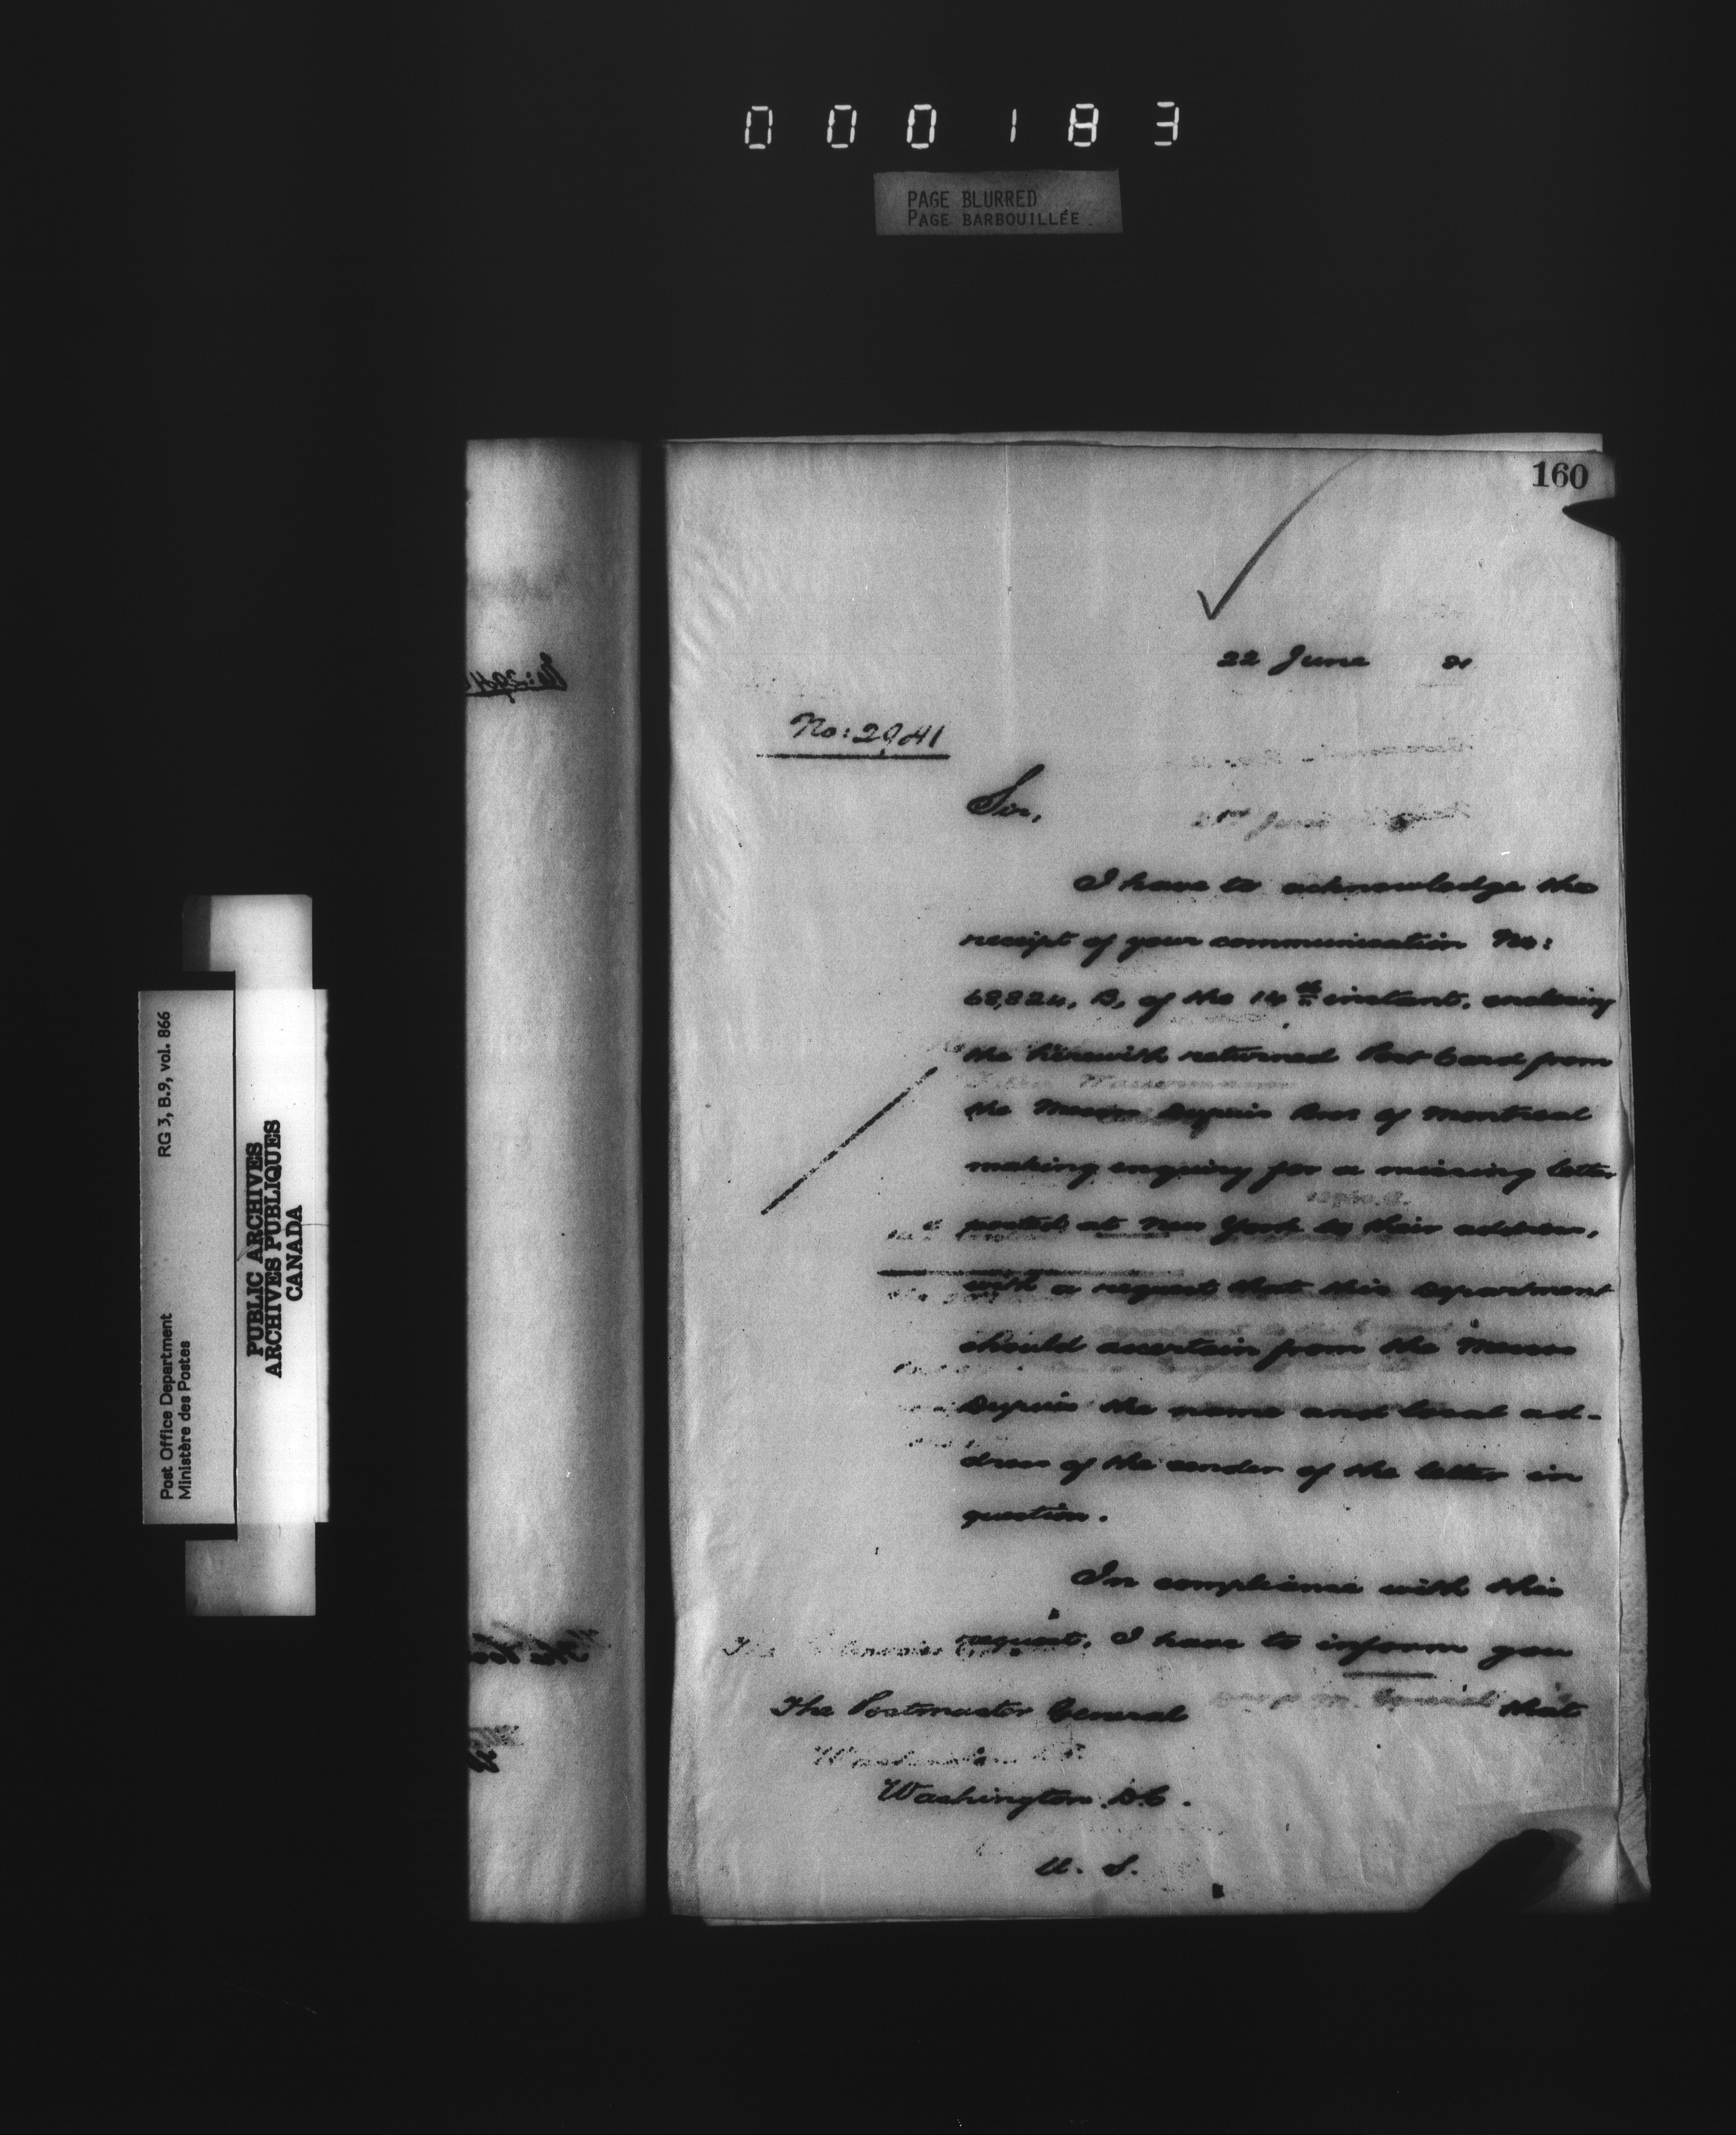 000183
PAGE BLURRED
PAGE BARBOUILLÉE
160
22 June 91
No: 2941
Sir,
I have to acknowledge the
receipt of your communication No:
68,824, B, of the 14th instant, enclosing
the herewith returned Post Card from
the Messrs Dupuis Bros of Montreal
making enquiry for a missing letter
posted at New York to their address,
with a request that this Department
should ascertain from the Messrs
Dupuis the name and local ad-
dress of the sender of the letter in
question.
In compliance with this
request, I have to inform you
that
The Postmaster General
Washington D.C.
U. S.
Post Office Department
Ministère des Postes
RG 3, B.9, vol. 866
PUBLIC ARCHIVES
ARCHIVES PUBLIQUES
CANADA